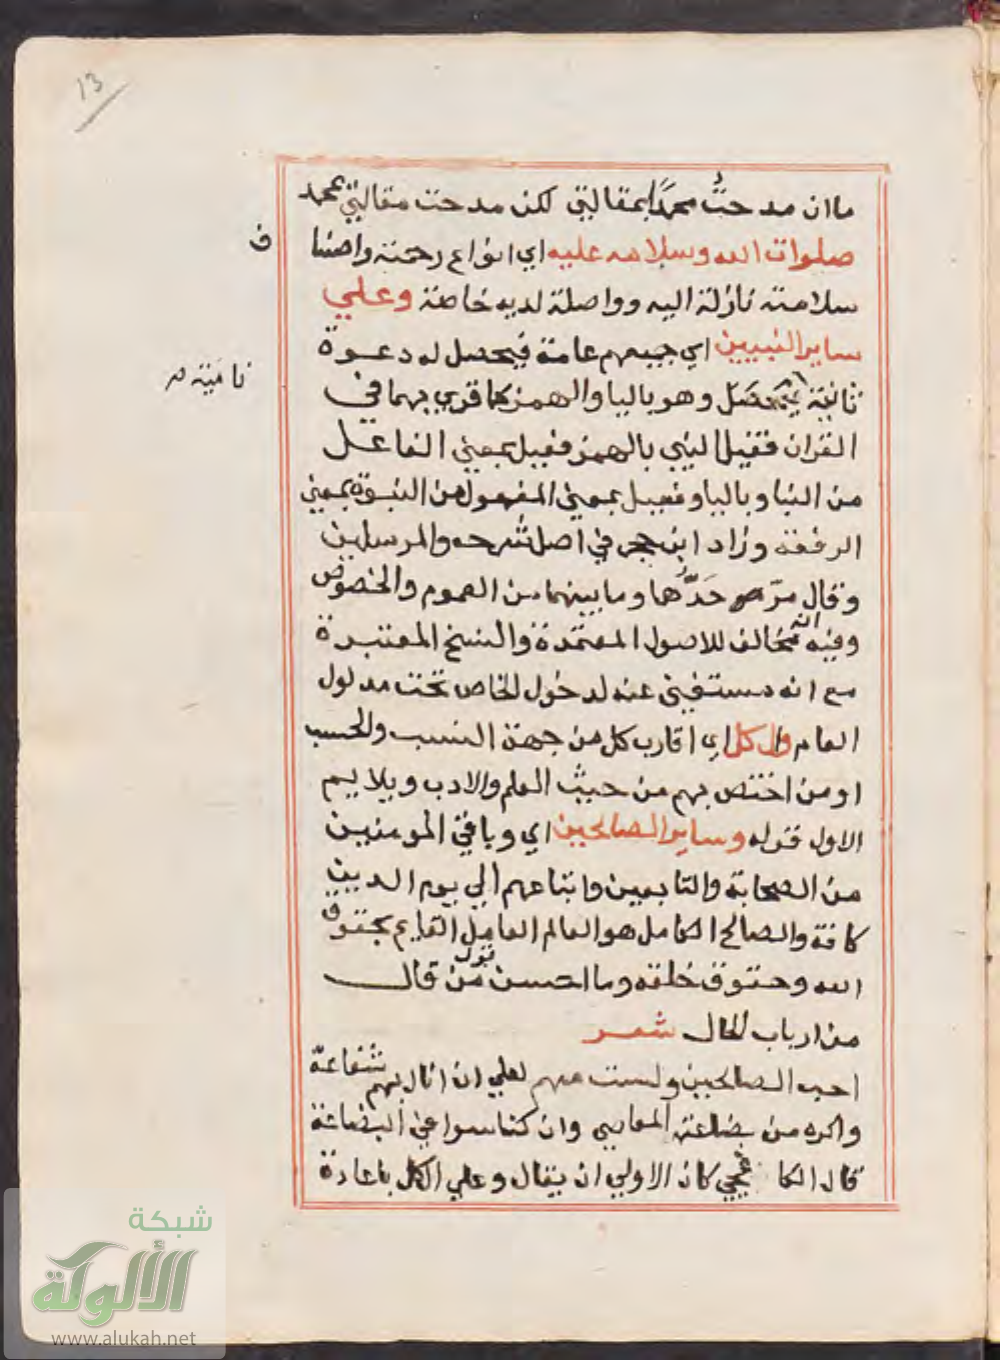 13
ما ان مدحتُ محمدًا بمقالتي لكن مدحت مقالتي بمحمد
صلوات الله وسلامه عليه اي انواع رحمته واصنا
ف
سلامته نازلة اليه وواصلة لديه خاصة وعلي
ساير النبيين اي جميعهم عامة فيحصل له دعوة
ثانية
نامية صـ
وهو بالياء والهمز كما قري بهما في
القران فقيل النبي بالهمز فعيل بمعني الفاعل
من النبا وبالياء وفعيل بمعني المفعول من النبوة بمعني
الرفعة وزاد ابن حجر في اصل شرحه والمرسلين
وقال مرّ حدّهما وما بينهما من العموم والخصوص
وفيه انه مخالف للاصول المعتمدة والنسخ المعتبرة
مع انه مستغني عنه لدخول الخاص تحت مدلول
العام وال كل اي اقارب كل من جهة النسب والحسب
او من اختص بهم من حيث العلم والادب ويلايم
الاول قوله وساير الصالحين اي وباقي المومنين
من الصحابة والتابعين واتباعهم الي يوم الدين
كافة والصالح الكامل هو العالم العامل القايم بحقوق
الله وحقوق خلقه وما احسن قول من قال
من ارباب الحال شعر
احب الصالحين ولست منهم لعلي ان انال بهم شفاعة
واكره من بضاعته المعاصي وان كنا سوا في البضاعة
قال الكا فيجي كان الاولي ان يقال وعلي ال كل باعادة
شبكة
الألوكة
www.alukah.net